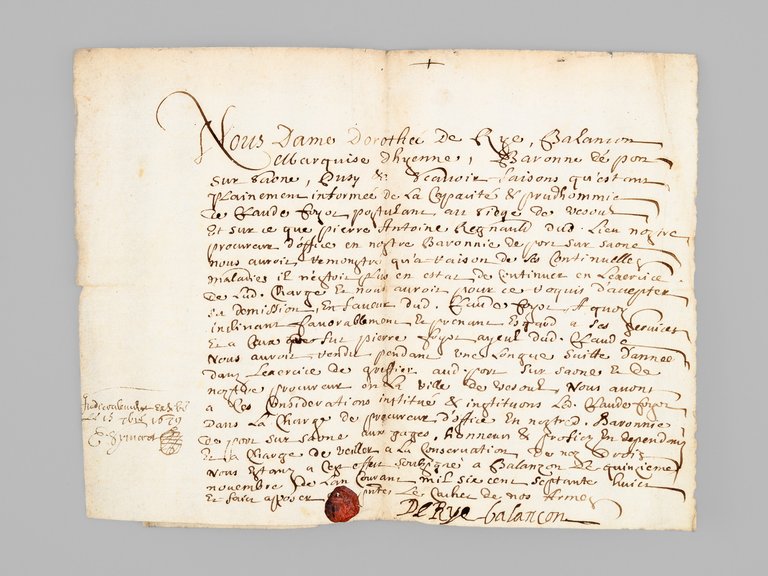 Nous Dame Dorothee De Rye, Balancon
Marquise dhyenne, Baronne de port
Sur Saone, Scavoir faisons qu'estant
Plainement informée de La Capacité & prudhommie
de Claude foyot postulant au siege de vesoul
Et sur ce que pierre Antoine Regnauld dud. Lieu nostre
procureur d'office en nostre Baronnie de port sur saone
nous auroit remonstré qu'a raison de ses Continuelles
maladies il n'estoit plus en estat de Continuer en Lexercice
de Lad. Charge Et nous auroit pour ce requis d'accepter
sa demission, En faveur dud. Claude foyot A quoy
inclinant favorablement Et prenant Esgard a ses services
Et a Ceux que fut pierre foyot ayeul dud. Claude
Nous auroit rendu pendant une Longue suitte d'année
dans Lexercice de greffier aud. port Sur Saone Et de
nostre procureur en La ville de vesoul, Nous avons
a Ces Considerations institué & instituons Led. Claude foyot
Dans La Charge de procureur d'office En nostred. Baronnie
de port sur saone aux gages, honneurs & profits En dependans
Et a Charge de veiller a La Conservation de nos Droits
Nous Estans a Cest effect soubsigné a Balancon Le quinzieme
novembre de Lan Courant mil six cent septante huict
Et faict apposer Le Cachet de nos Armes
De Rye balancon
Le 15 1679